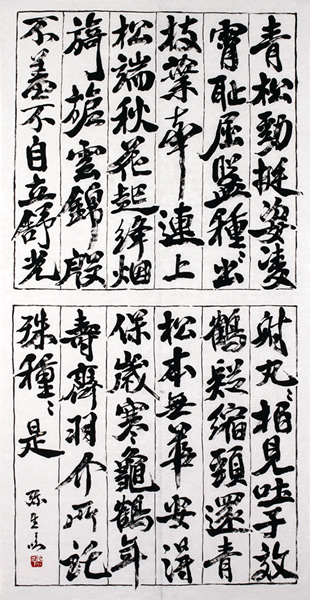 青松勁挺姿凌
霄耻屈盤種〻出
枝葉牽連上
松端秋花起絳烟
旖旎雲錦殷
不羞不自立舒光
射丸〻柏見吐子效
鶴疑縮頸還青
松本無華安得
保歲寒龜鶴年
壽齊羽介所託
殊種〻是